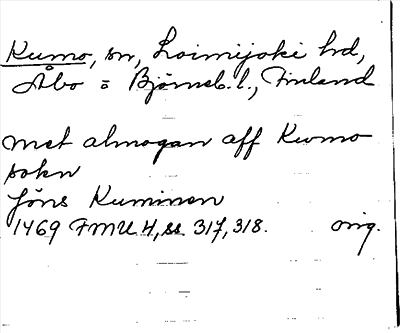 Kumo, sn, Loimijoki hd,
Åbo = Björneb. l., Finland
met almogan aff Kwmo
sokn
Jöns Kuminen
1469 FMU 4, ss. 317, 318. orig.